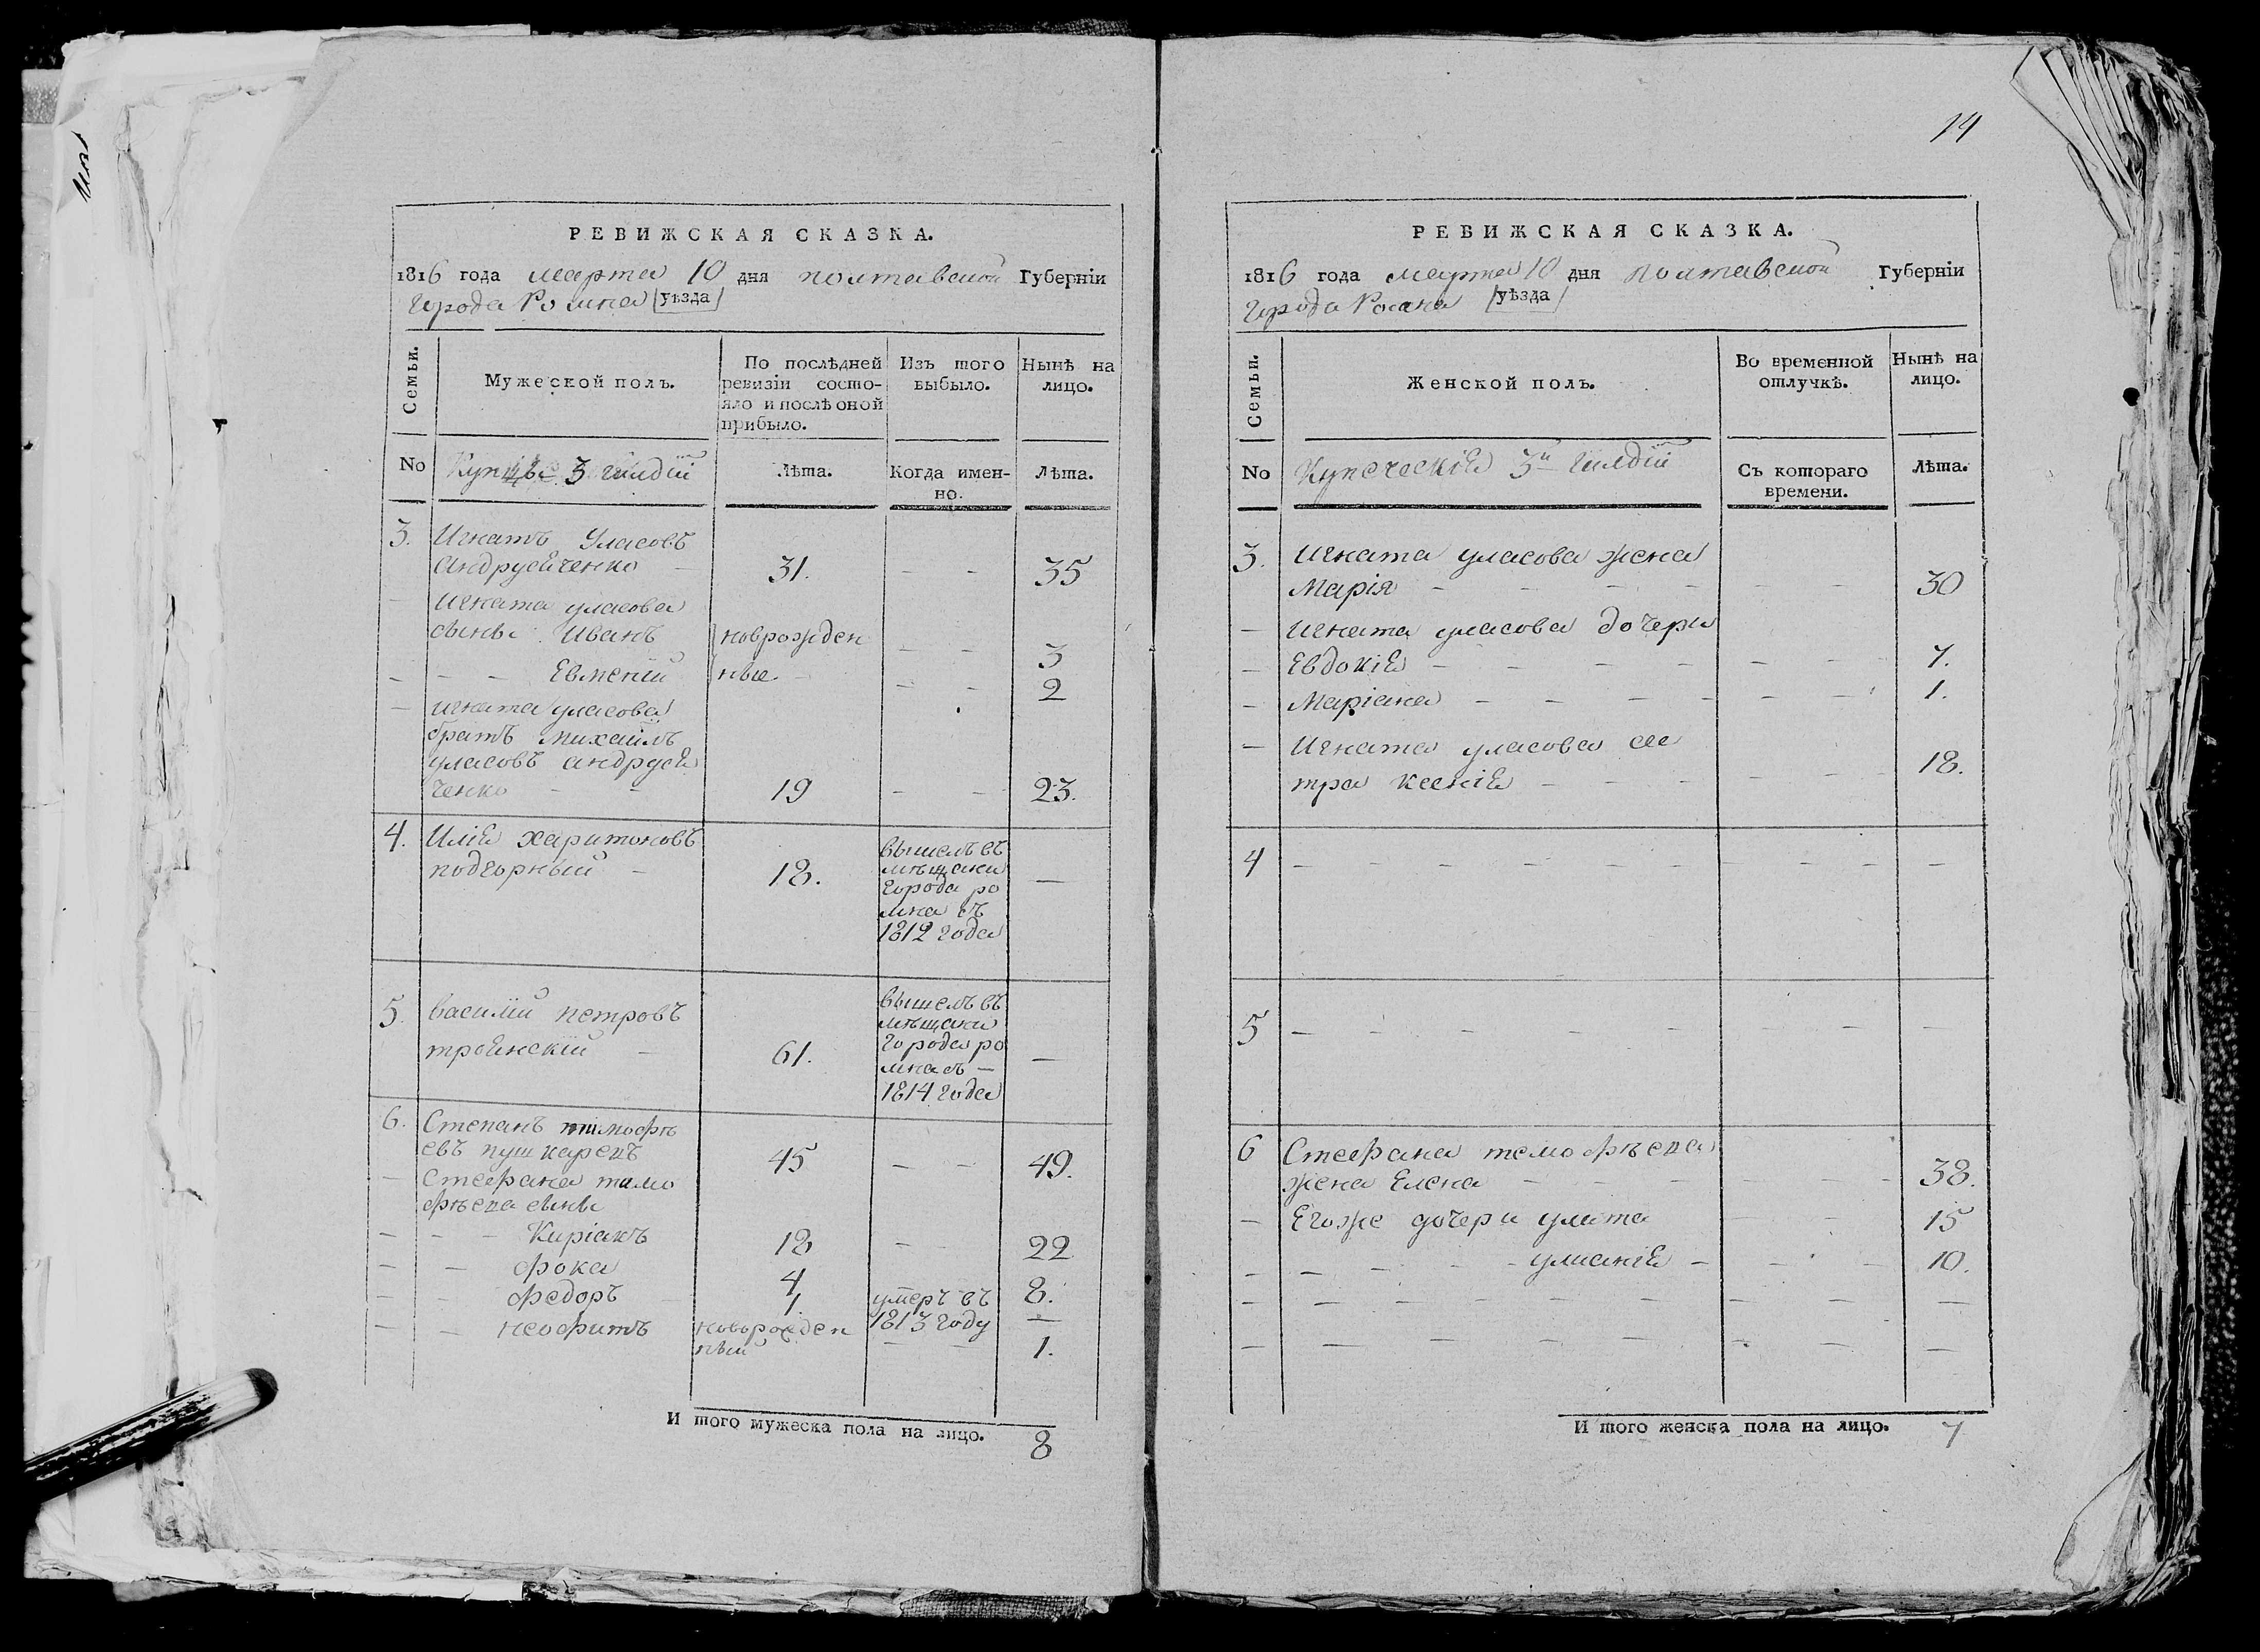 РЕВИЖСКАЯ СКАЗКА.
1816 года марта 10 дня полтавской Губерніи
города Ромна уѣзда
Семьи.
Мужеской полъ.
По послѣдней
ревизіи состо-
яло и послѣ оной
прибыло.
Изъ того
выбыло.
Нынѣ на
лицо.
No
Купцы 3 гилдіи
Лѣта.
Когда имен-
но.
Лѣта.
3. Игнатъ Уласовъ
андрусенко 31. - - 35
Игната уласова
сыны Иванъ новрожден - - 3
- - - Евменій ные - - 2
- игната уласова
братъ михаилъ
уласовъ андрусе
ченко - - 19 - - 23.
4. Илія харитоновъ
подгорный - 18. —
вышелъ въ
мѣщани
города ро
мна въ
1812 года
5. василій петровъ
троянскій - 61. —
вышелъ въ
мѣщани
города ро
мна въ —
1814 года
6. Степанъ тимофѣ
евъ пушкаренъ 45 - - 49.
- Стефана тимо
фѣева сыны
- - - Киріакъ 18 - - 22
- - фока 4 8.
- - федоръ 1. умеръ въ
1813 году —
- - неофитъ новорожден
ный - - 1.
И того мужеска пола на лицо. 8
14
РЕВИЖСКАЯ СКАЗКА.
1816 года марта 10 дня полтавской Губерніи
города Ромна уѣзда
Семьи.
Женской полъ.
Во временной
отлучкѣ.
Нынѣ на
лицо.
No
Купеческія 3й гилдіи
Съ котораго
времени.
Лѣта.
3. Игната уласова жена
Марія - - - - - - 30
- Игната уласова дочери
- Евдокія - - - - - - 7.
- Маріана - - - - - - 1.
- Игната уласова сес
тра ксенія - - - - - 18.
4 - - - - - - - - - - -
5 - - - - - - - - - -
6 Стефана темофѣева
жена Елена - - - - - - 38.
- Егоже дочери улита - - 15
- - - - - улианія - - - 10.
- - - - - - - - - -
- - - - - - - -
И того женска пола на лицо. 7